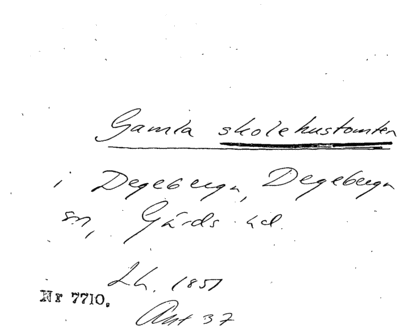 Gamla skolehustomten
i Degeberga, Degeberga
sn, Gärds hd.
Lh. 1851
Nr 7710.
Akt 37